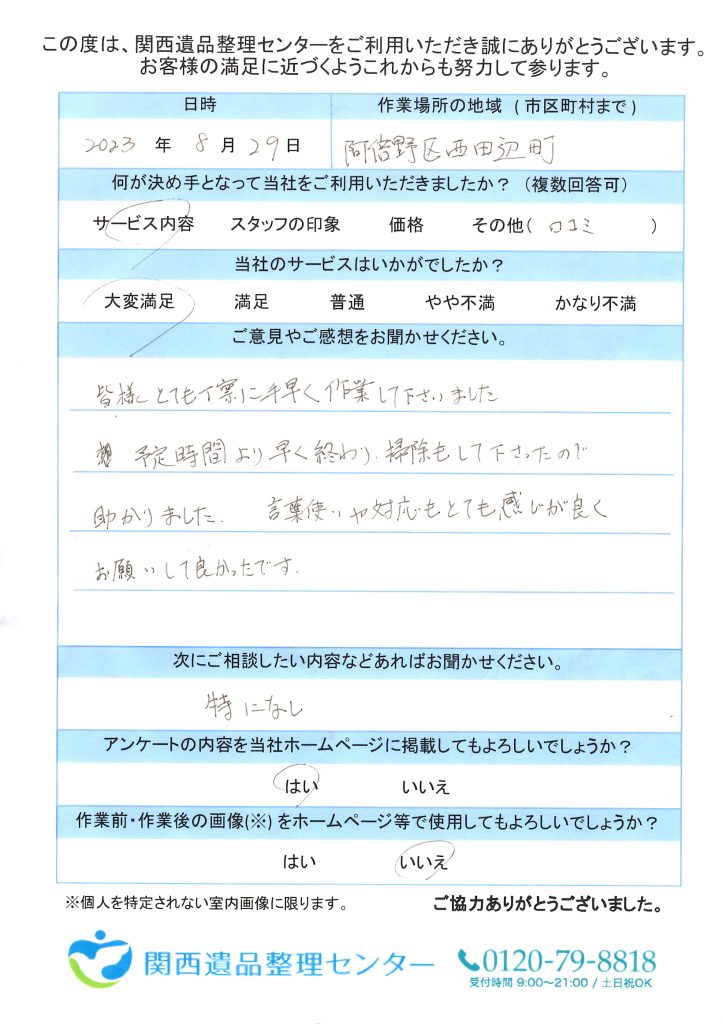 この度は、関西遺品整理センターをご利用いただき誠にありがとうございます。
お客様の満足に近づくようこれからも努力して参ります。
日時 作業場所の地域 (市区町村まで)
2023 年 8 月 29 日 阿倍野区西田辺町
何が決め手となって当社をご利用いただきましたか？（複数回答可）
サービス内容 スタッフの印象 価格 その他( 口コミ )
当社のサービスはいかがでしたか？
大変満足 満足 普通 やや不満 かなり不満
ご意見やご感想をお聞かせください。
皆様とても丁寧に手早く作業して下さいました
予定時間より早く終わり、掃除もして下さったので
助かりました。 言葉使いや対応もとても感じが良く
お願いして良かったです。
次にご相談したい内容などあればお聞かせください。
特になし
アンケートの内容を当社ホームページに掲載してもよろしいでしょうか？
はい いいえ
作業前・作業後の画像(※)をホームページ等で使用してもよろしいでしょうか？
はい いいえ
※個人を特定されない室内画像に限ります。 ご協力ありがとうございました。
関西遺品整理センター 0120-79-8818
受付時間 9:00～21:00 / 土日祝OK